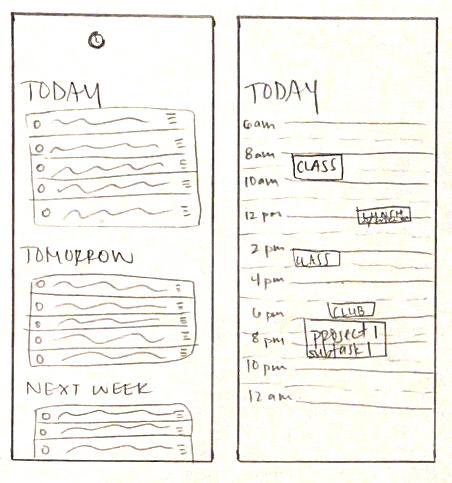 TODAY
TOMORROW
NEXT WEEK
TODAY
6am
8am
CLASS
10am
12 pm
LUNCH
2 pm
CLASS
4 pm
6 pm
CLUB
8 pm
project 1
subtask 1
10 pm
12 am